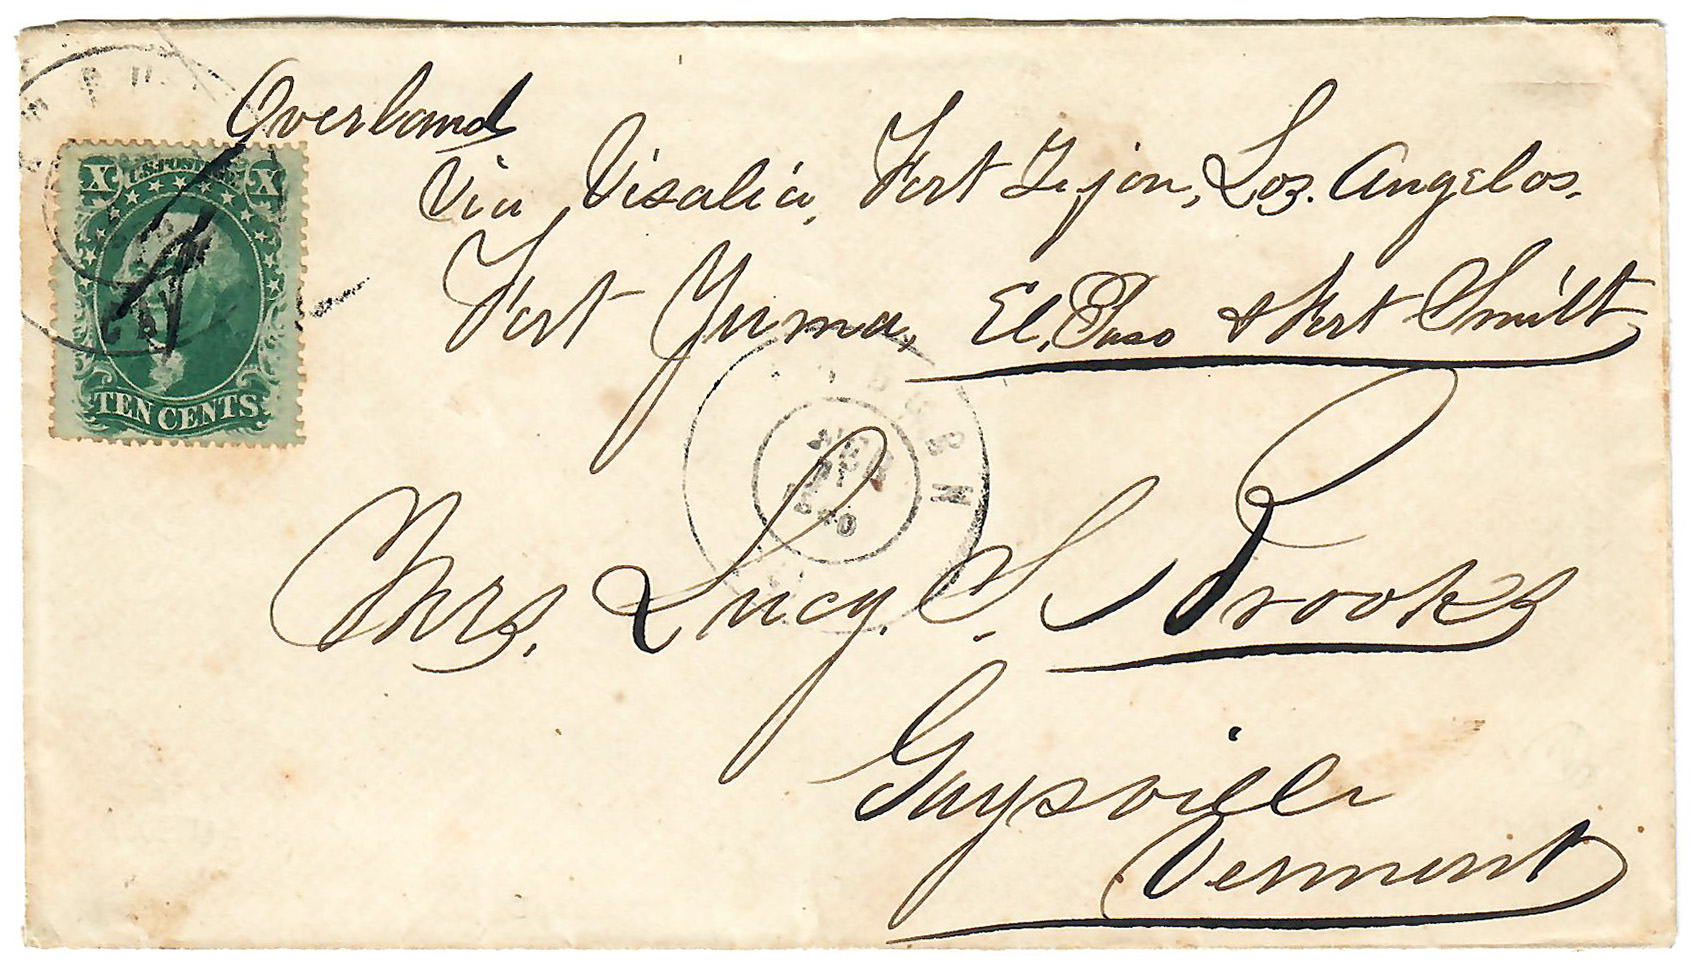 Overland
Via Visalia, Fort Tejon, Los. Angelos.
Fort Yuma, El. Paso & Fort Smith
X U.S. POSTAGE X
TEN CENTS
1860
Mrs. Lucy. S. Brooks
Gaysville
Vermont